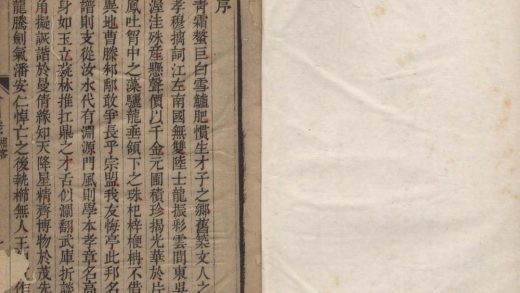 序
青霜螯巨白雪鱸肥慣生才子之鄉舊築文人之
孝穆摛詞江左南國無雙陸士龍振彩雲間東吳
渥洼殊產懸聲價以千金元圃積珍揚光華於片
風吐胷中之藻驪龍垂頷下之珠杞梓楩柟不借
異地曹滕邾鄫敢爭長乎宗盟我友悔亭此邦名
譜則支從汝水代有淵源門風則學本孝章名高
身如玉立瓊林推扛鼎之才舌似瀾翻武庫折談
擬詼諧於曼倩緣知天降星精齊博物於茂先
龍騰劍氣潘安仁悼亡之後執櫛無人王作